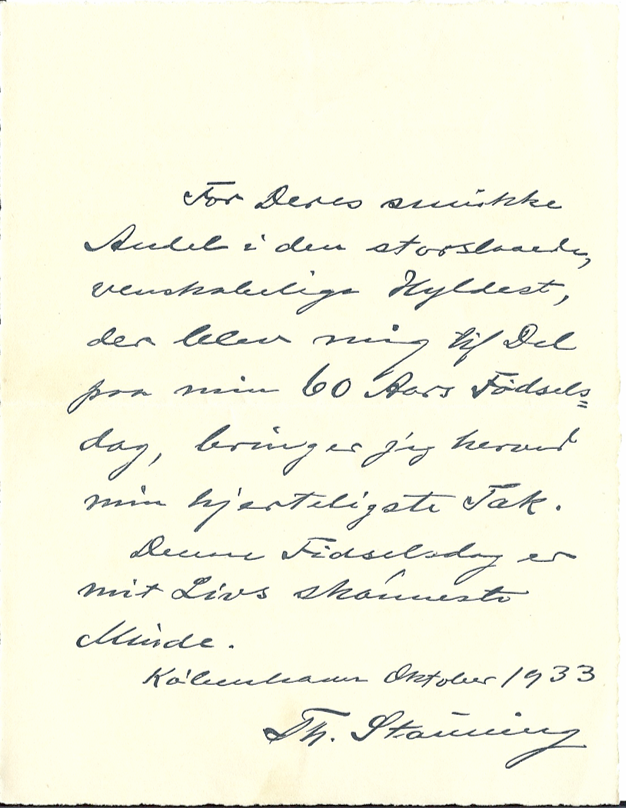 For Deres smukke
Andel i den storslaaede,
venskabelige Hyldest,
der blev mig til Del
paa min 60 Aars Fødsels=
dag, bringer jeg herved
min hjerteligste Tak.
Denne Fødselsdag er
mit Livs skønneste
Minde.
København Oktober 1933
Th. Stauning